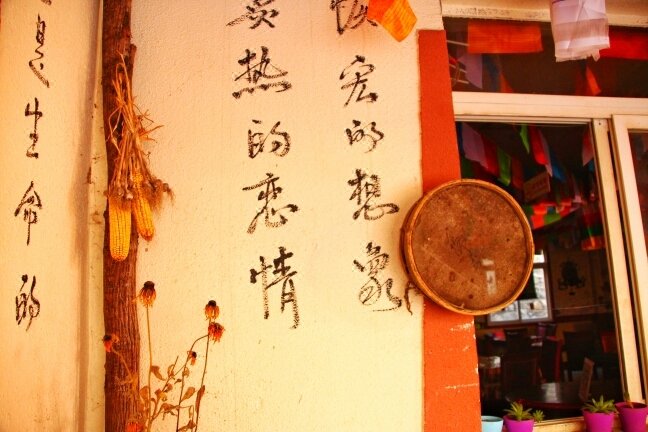 恢宏的想象
炙热的恋情
是生命的